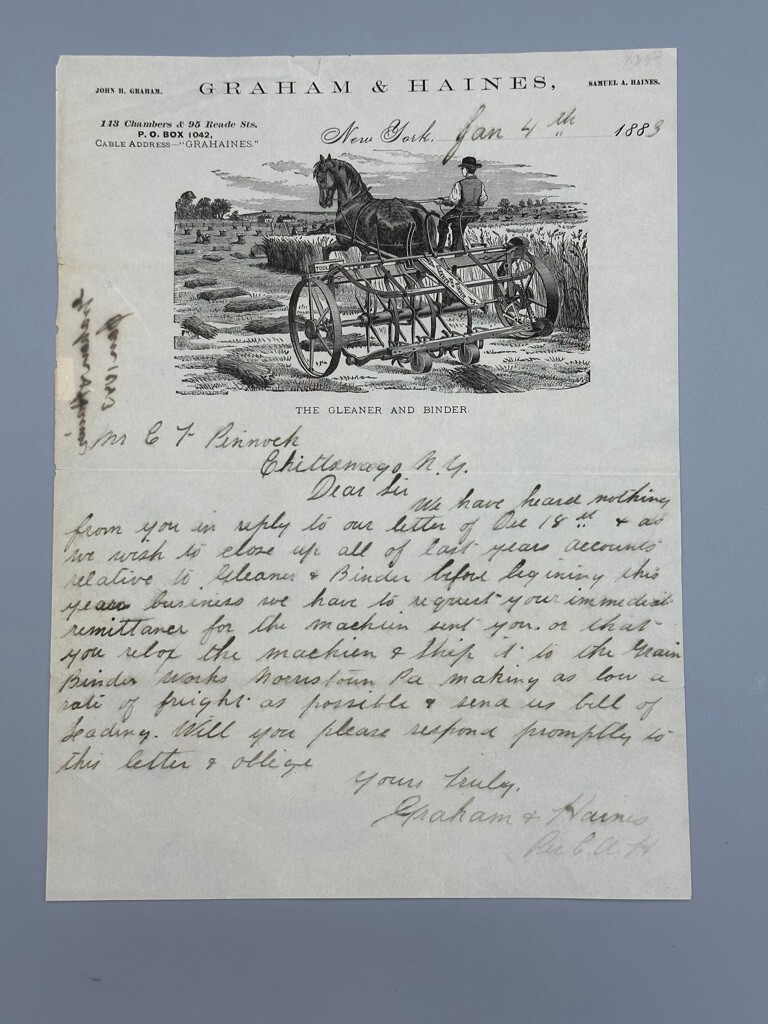 JOHN H. GRAHAM.
GRAHAM & HAINES,
SAMUEL A. HAINES.
113 Chambers & 95 Reade Sts.
P. O. BOX 1042,
CABLE ADDRESS—"GRAHAINES."
New York, Jan 4th 1883
THE GLEANER AND BINDER.
Jan 1883
Graham & Haines
Mr C F Pinnock
Chittenango N. Y.
Dear Sir We have heard nothing
from you in reply to our letter of Dec 18th & as
we wish to close up all of last years accounts
relative to Gleaner & Binder before begining this
years business we have to request your immediate
remittance for the machien sent you. or that
you relox the machien & Ship it to the Grain
Binder Works Norristown Pa making as low a
rate of freight as possible & send us bill of
Leading. Will you please respond promptly to
this letter & oblige
Yours Truly,
Graham & Haines
Per